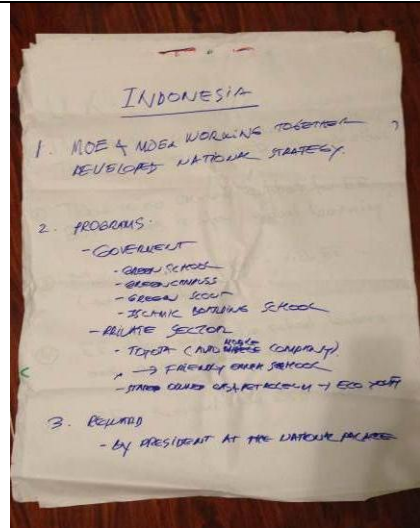 INDONESIA
1. MOE & MOEA WORKING TOGETHER
DEVELOPED NATIONAL STRATEGY.
2. PROGRAMS.
- GOVERMENT
- GREEN SCHOOL
- GREEN CAMPUS
- GREEN SCOUT
- ISLAMIC BOARDING SCHOOL
- PRIVATE SECTOR
- TOYOTA (AUTO MOBILE COMPANY)
→ FRIENDLY EARTH SCHOOL
- STATE OWNED PETROLEUM → ECO YOUTH
3. REWARD
- BY PRESIDENT AT THE NATIONAL PALACE